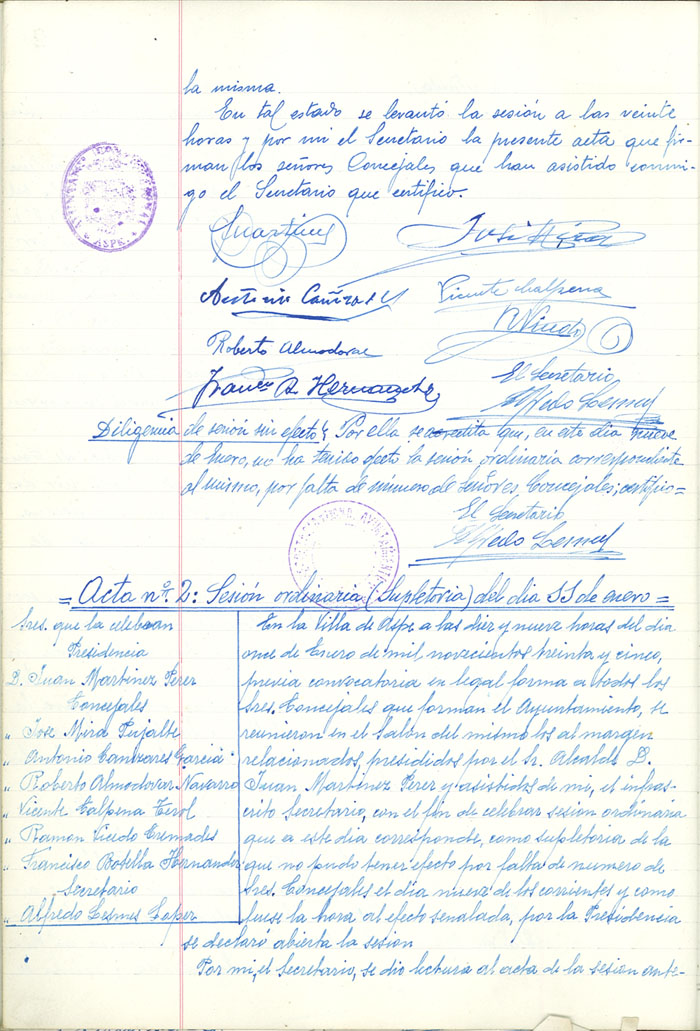 la misma.
En tal estado se levantó la sesión a las veinte
horas y por mi el Secretario la presente acta que fir-
man los señores Concejales que han asistido conmi-
go el Secretario que certifico.
AYUNTAMIENTO CONSTITUCIONAL
ASPE
JMartinez
José Mira
Antonio Cañizares
Vicente Calpena
RVicedo
Roberto Almodovar
El Secretario
Franco B. Hernandez
Alfredo Lesmes
Diligencia de sesión sin efecto: Por ella se acredita que, en este dia nueve
de Enero, no ha tenido efecto la sesión ordinaria correspondiente
al mismo, por falta de número de Señores Concejales; certifico=
El Secretario
Alfredo Lesmes
= Acta nº 2: Sesión ordinaria (Supletoria) del dia 11 de enero =
Sres. que la celebran
Presidencia
D. Juan Martinez Perez
Concejales
" Jose Mira Pujalte
" Antonio Canizares Garcia
" Roberto Almodovar Navarro
" Vicente Calpena Cerol
" Ramon Vicedo Cremades
" Francisco Botella Hernandez
Secretario
" Alfredo Lesmes Lopez
En la Villa de Aspe a las diez y nueve horas del dia
once de Enero de mil novecientos treinta y cinco,
previa convocatoria en legal forma a todos los
Sres. Concejales que forman el Ayuntamiento, se
reunieron en el Salón del mismo los al margen
relacionados, presididos por el Sr. Alcalde D.
Juan Martinez Perez y asistidos de mi, el infras-
crito Secretario, con el fin de celebrar sesion ordinaria
que a este dia corresponde, como supletoria de la
que no pudo tener efecto por falta de numero de
Sres. Concejales el dia nueve de los corrientes y como
fuese la hora al efecto senalada, por la Presidencia
se declaró abierta la sesion
Por mi, el Secretario, se dio lectura al acta de la sesion ante-